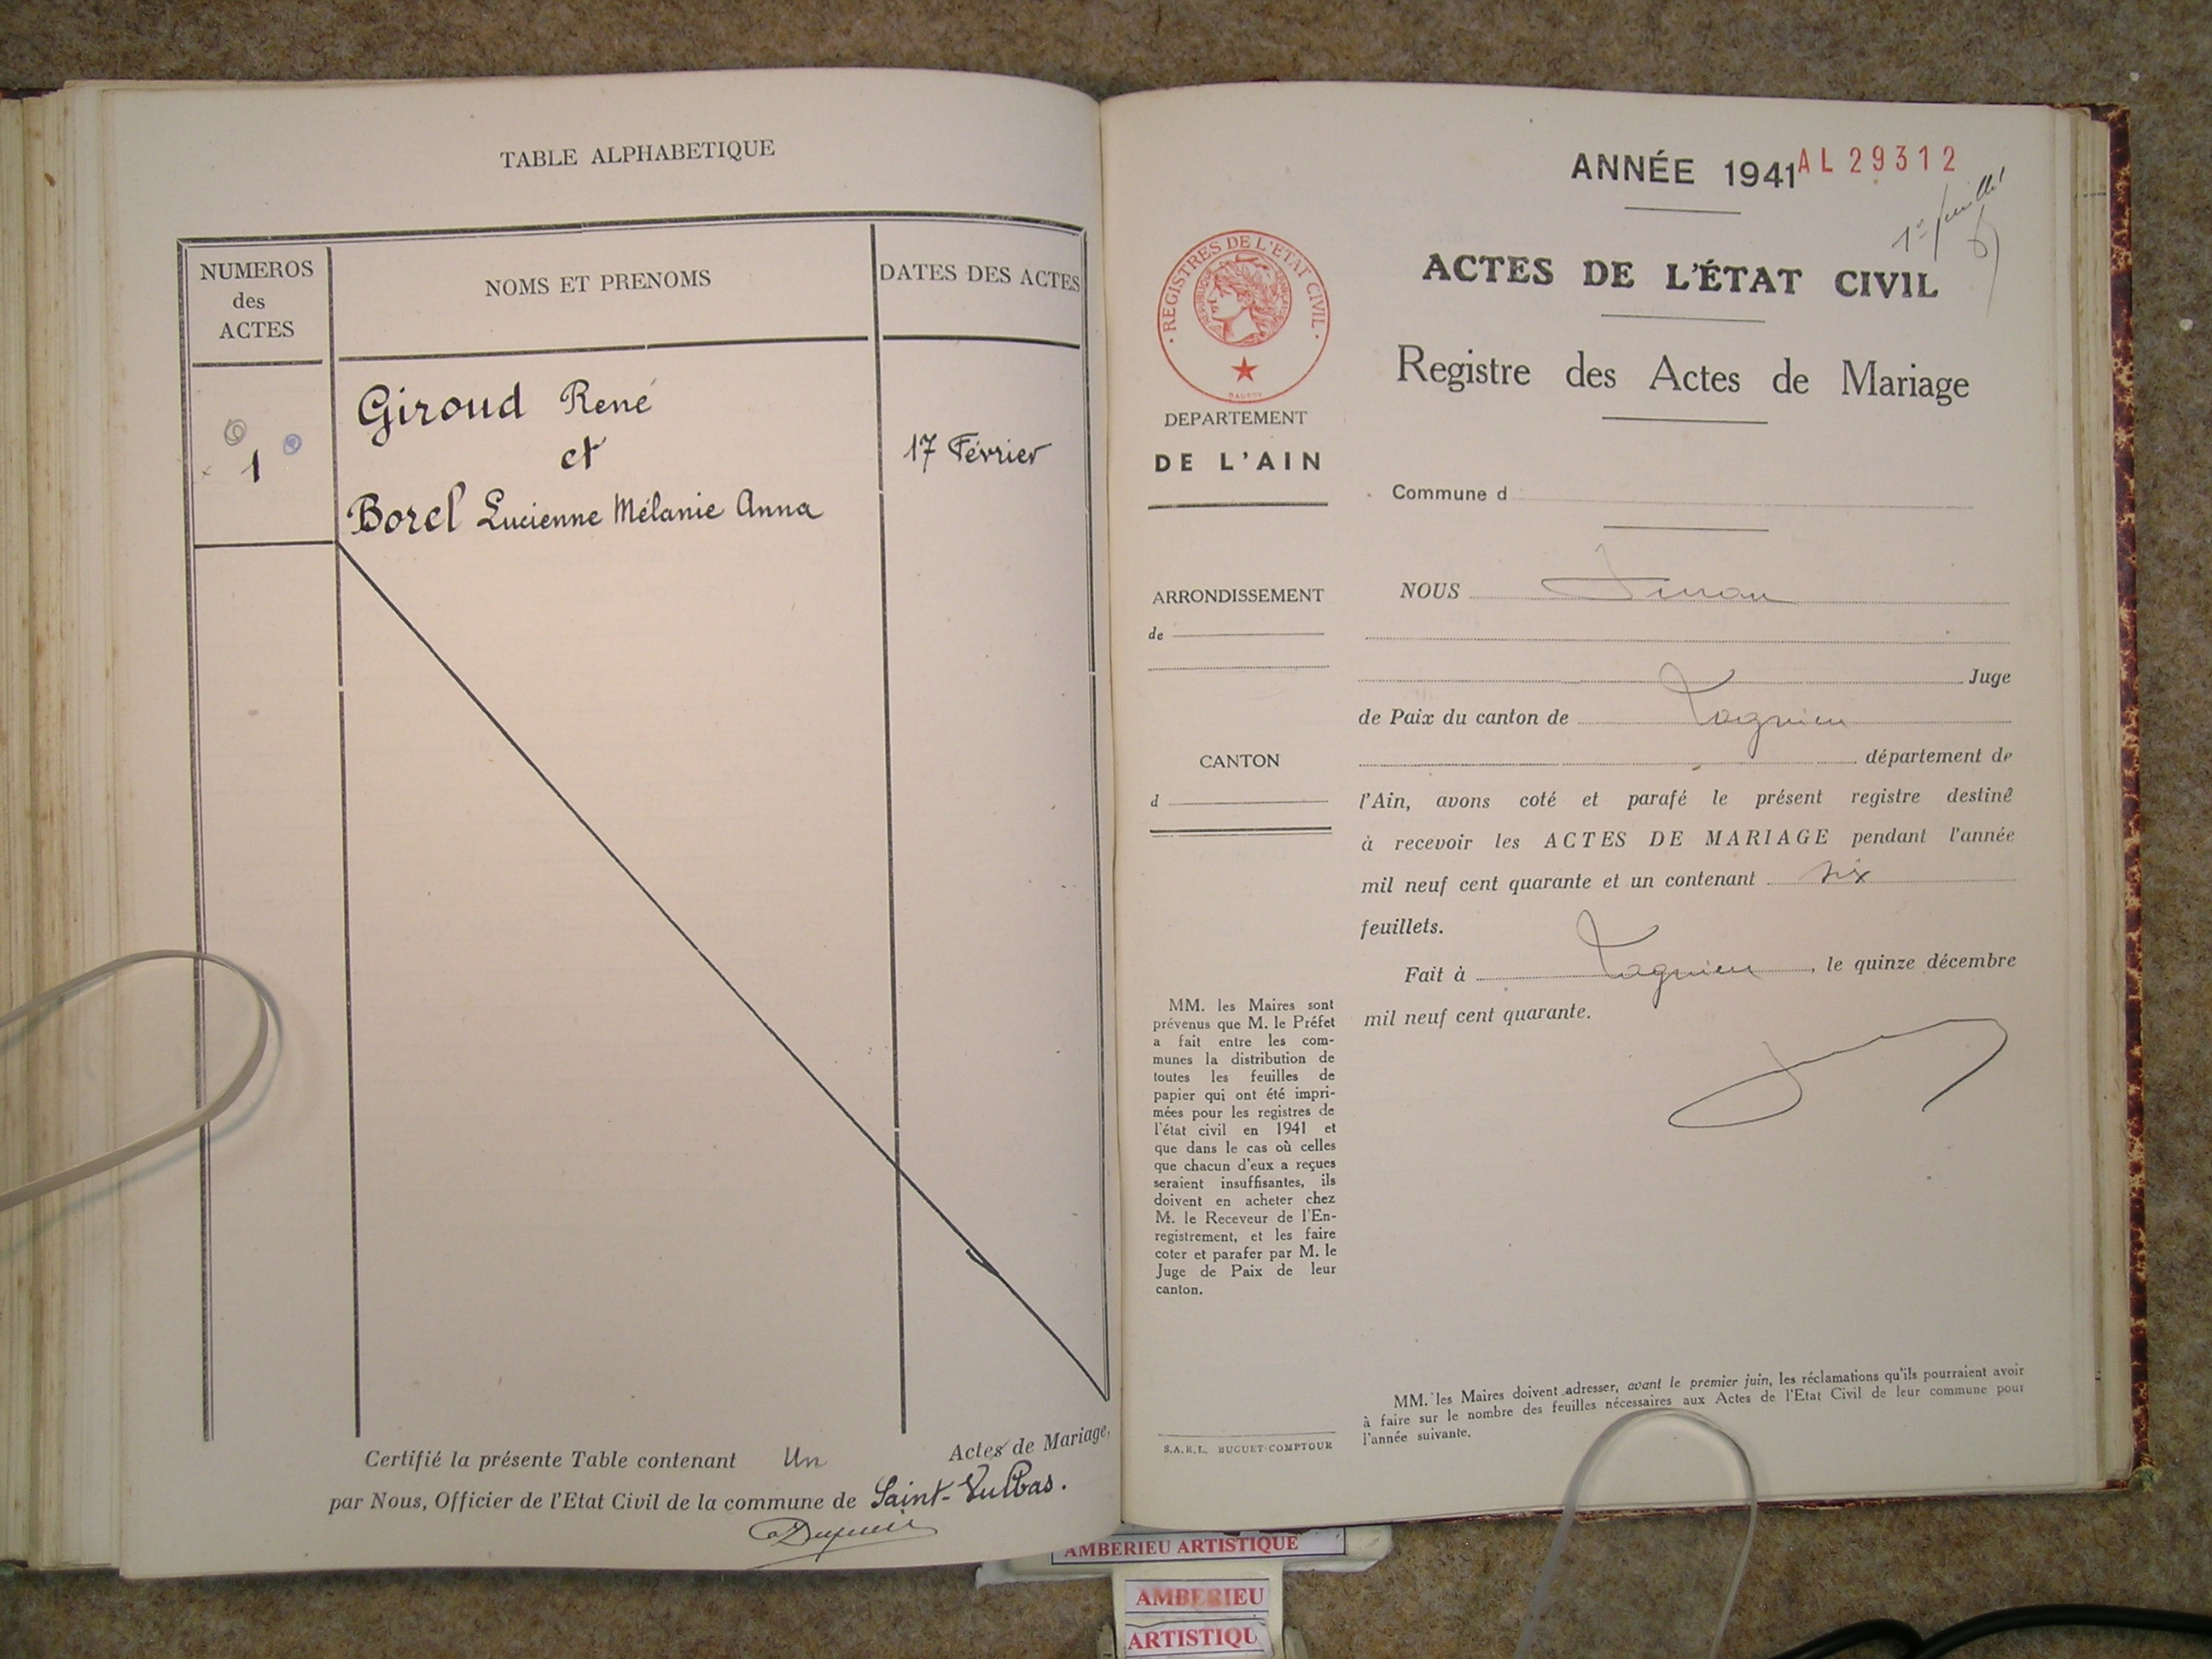 TABLE ALPHABETIQUE
NUMEROS
des
ACTES
NOMS ET PRENOMS
DATES DES ACTES
1
Giroud René
et
Borel Lucienne Mélanie Anna
17 Février
Certifié la présente Table contenant Un Actes de Mariage,
par Nous, Officier de l'Etat Civil de la commune de Saint-Vulbas.
ANNÉE 1941
AL 29312
1er feuillet
ACTES DE L'ÉTAT CIVIL
Registre des Actes de Mariage
REGISTRES DE L'ETAT CIVIL
REPUBLIQUE FRANÇAISE
DEPARTEMENT
DE L'AIN
Commune d
ARRONDISSEMENT
de
CANTON
d
NOUS
Juge
de Paix du canton de Lagnieu
département de
l'Ain, avons coté et parafé le présent registre destiné
à recevoir les ACTES DE MARIAGE pendant l'année
mil neuf cent quarante et un contenant six
feuillets.
Fait à Lagnieu, le quinze décembre
mil neuf cent quarante.
MM. les Maires sont
prévenus que M. le Préfet
a fait entre les com-
munes la distribution de
toutes les feuilles de
papier qui ont été impri-
mées pour les registres de
l'état civil en 1941 et
que dans le cas où celles
que chacun d'eux a reçues
seraient insuffisantes, ils
doivent en acheter chez
M. le Receveur de l'En-
registrement, et les faire
coter et parafer par M. le
Juge de Paix de leur
canton.
S.A.R.L. BUGUET-COMPTOUR
MM. les Maires doivent adresser, avant le premier juin, les réclamations qu'ils pourraient avoir
à faire sur le nombre des feuilles nécessaires aux Actes de l'Etat Civil de leur commune pour
l'année suivante.
AMBERIEU ARTISTIQUE
AMBERIEU
ARTISTIQU